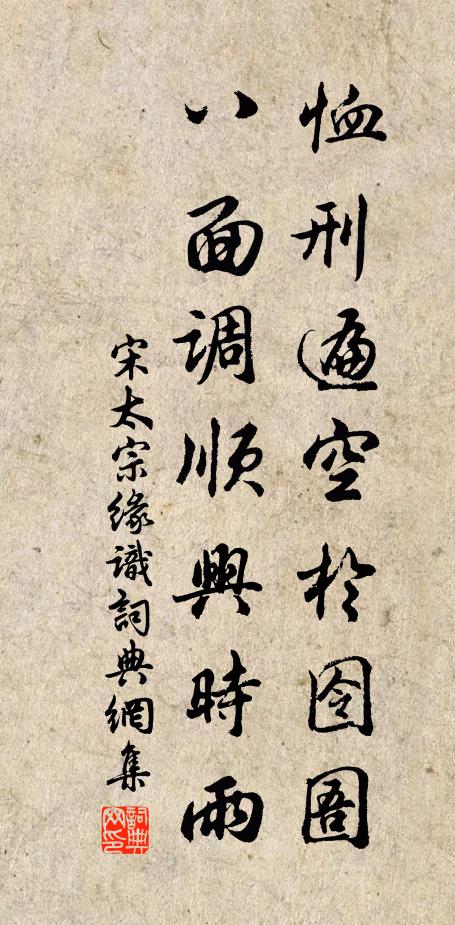 恤刑遍空於囹圄
八面調順興時雨
宋太宗緣識詞典網集
詞典网印